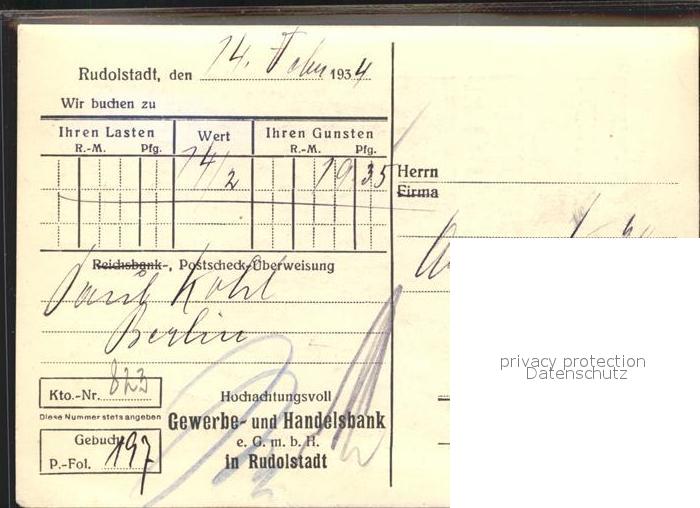 Rudolstadt, den 14. Febr 1934
Wir buchen zu
Ihren Lasten Wert Ihren Gunsten
R.-M. Pfg. R.-M. Pfg.
14/2 19 35
Herrn
Firma
Reichsbank-, Postscheck-Überweisung
Paul Kohl
Berlin
Kto.-Nr. 823
Diese Nummer stets angeben
Gebucht
P.-Fol. 197
Hochachtungsvoll
Gewerbe- und Handelsbank
e. G. m. b. H.
in Rudolstadt
privacy protection
Datenschutz